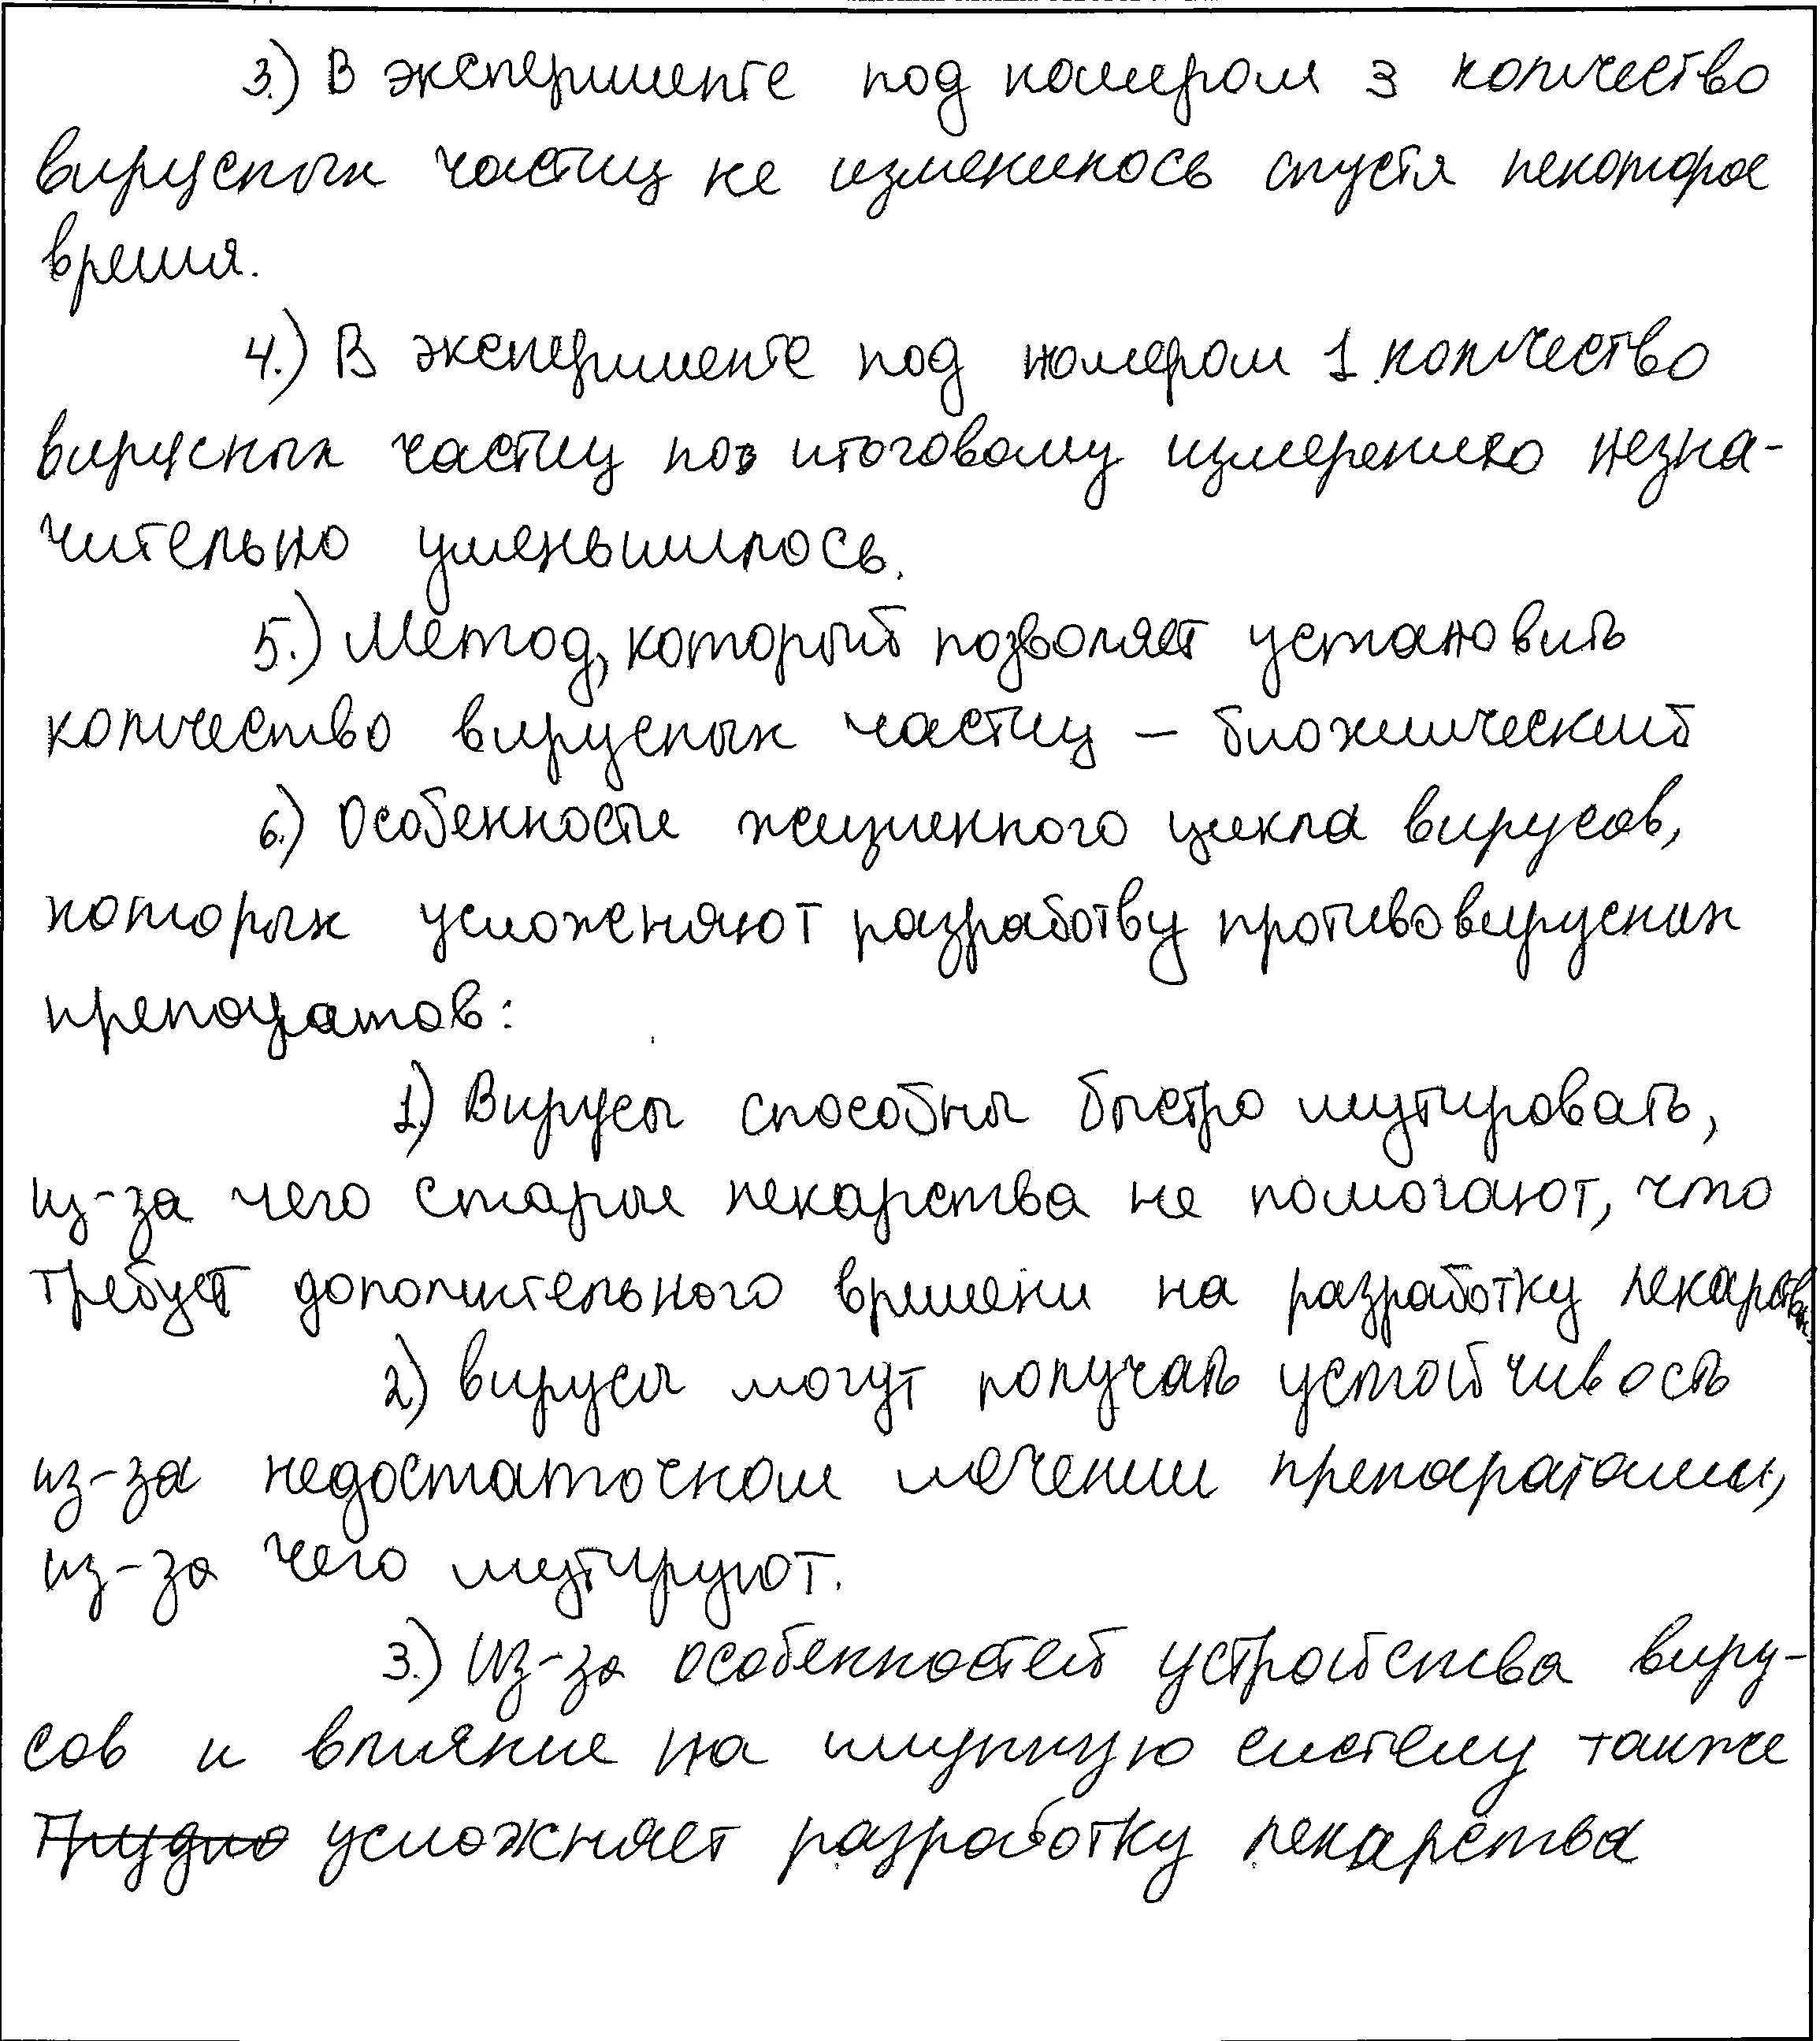 3.) В эксперименте под номером 3 количество
вирусных частиц не изменилось спустя некоторое
время.
4.) В эксперименте под номером 1 количество
вирусных частиц по итоговому измерению незна-
чительно уменьшилось.
5.) Метод, который позволяет установить
количество вирусных частиц – биохимический
6.) Особенности жизненного цикла вирусов,
которых усложеняют разработву противовирусных
препоратов:
1.) Вирусы способны быстро мутировать,
из-за чего старые лекарства не помогают, что
требует дополнительного времени на разработку лекарства.
2) вирусы могут получать устойчивость
из-за недостаточном лечении препаратами,
из-за чего мутируют.
3.) Из-за особенностей устройства виру-
сов и влияние на имунную систему также
Трудно усложняет разработку лекарства